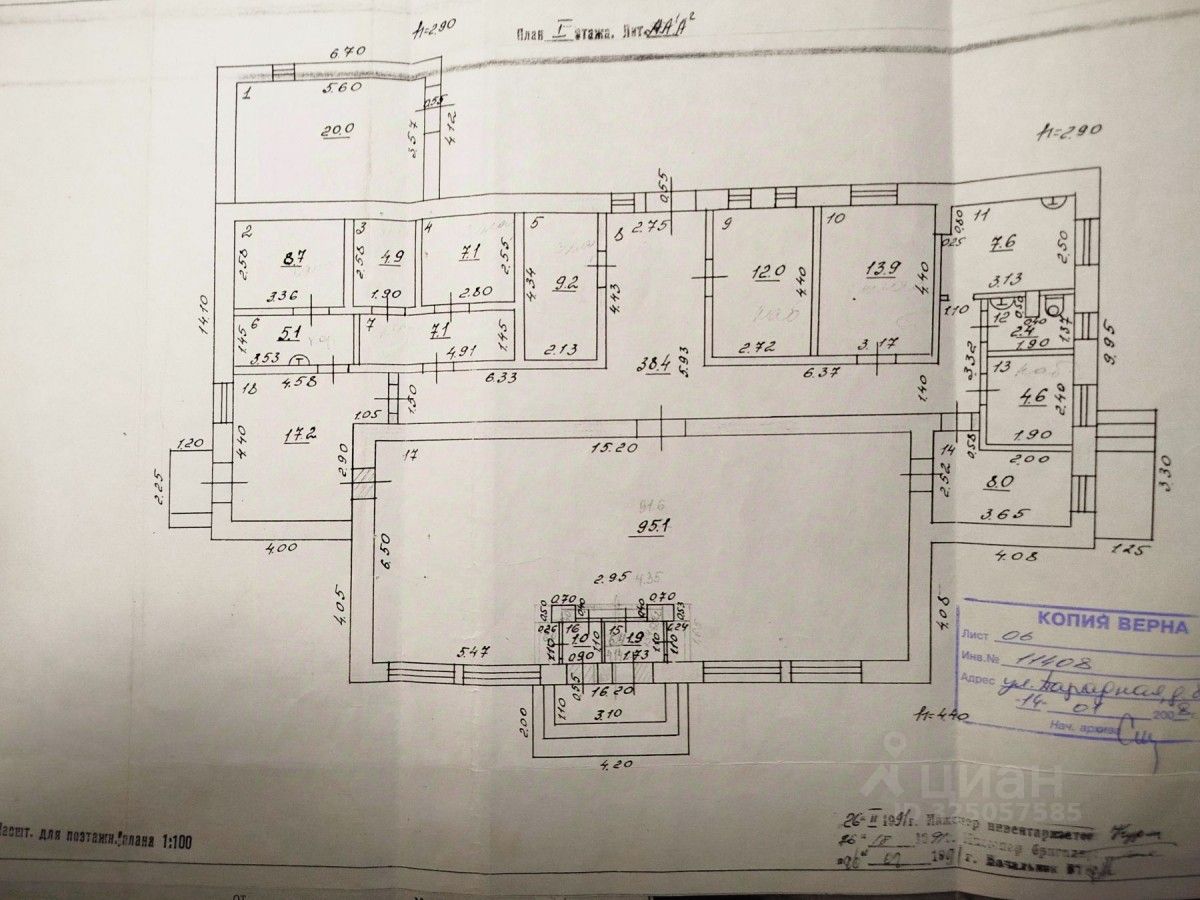 План I этажа. Лит. АА¹А²
h=2.90
6.70
1
5.60
20.0
0.55
3.57
4.12
h=2.90
14.10
2
8.7
2.58
3.36
3
4.9
2.58
1.90
4
7.1
2.55
2.80
5
9.2
4.34
2.13
6
5.1
1.45
3.53
7
7.1
4.91
1.45
8
2.75
0.55
4.43
38.4
5.93
6.33
6.37
1.40
9
12.0
4.40
2.72
10
13.9
4.40
3.17
11
7.6
0.80
0.25
2.50
3.13
1.10
12
2.4
0.50
0.40
1.37
1.90
3.32
9.95
13
4.6
2.40
1.90
14
8.0
0.58
2.00
2.52
3.65
4.08
3.30
1.25
18
4.58
17.2
4.40
1.05
1.30
2.90
1.20
2.25
4.00
17
15.20
91.6
95.1
6.50
4.05
4.08
2.95
4.35
0.70
0.70
0.50
0.40
0.40
0.53
0.26
16
1.0
1.10
1.10
0.90
15
1.9
1.10
1.73
0.24
1.10
5.47
0.55
16.20
1.10
3.10
2.00
4.20
h=4.40
КОПИЯ ВЕРНА
Лист 06
Инв.№ 11408
Адрес ул. Парадная, д.
14 01 200
Нач. архива
циан
ID 325057585
Масшт. для поэтажн. плана 1:100
26 II 1991г. Инженер инвентаризатор
г. Начальник